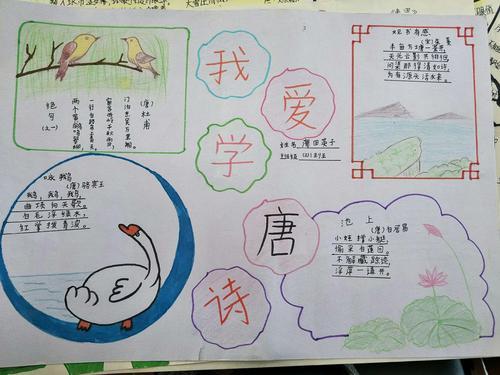 我
爱
学
唐
诗
绝句
(之一)
两个黄鹂鸣翠柳,
一行白鹭上青天。
窗含西岭千秋雪,
门泊东吴万里船。
(唐)杜甫
观书有感
(宋)朱熹
半亩方塘一鉴开,
天光云影共徘徊。
问渠那得清如许,
为有源头活水来。
姓名:
班级:
咏鹅
(唐)骆宾王
鹅,鹅,鹅,
曲项向天歌。
白毛浮绿水,
红掌拨清波。
池上
(唐)白居易
小娃撑小艇,
偷采白莲回。
不解藏踪迹,
浮萍一道开。